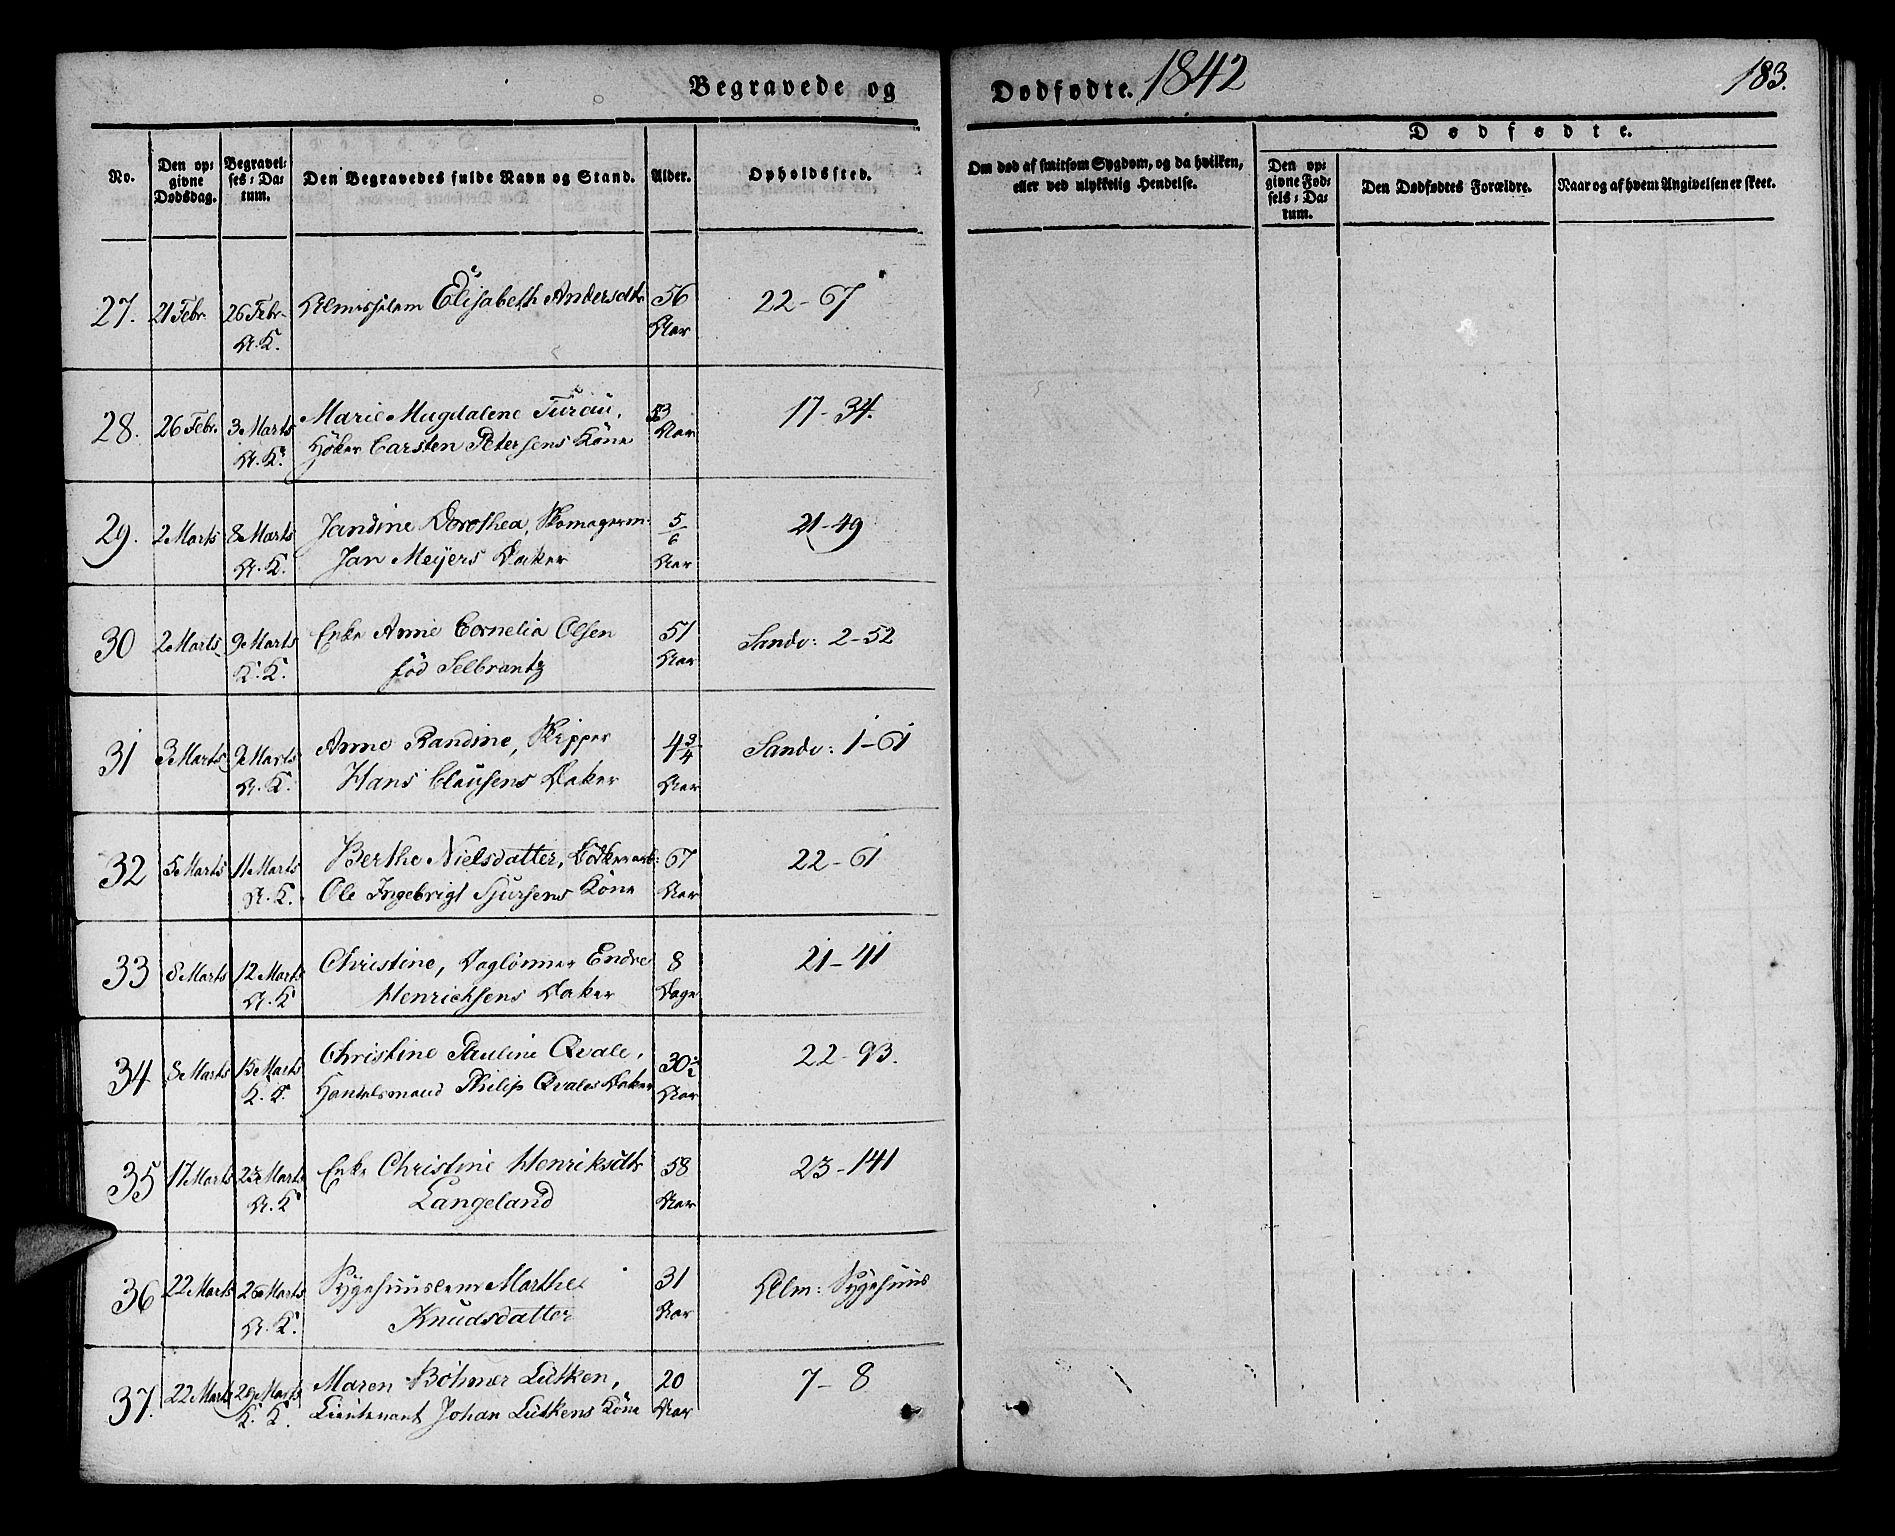 Begravede og Dødfødte. 1842
183.
No.
Den opgivne Dødsdag.
Begravelses-Datum.
Den Begravedes fulde Navn og Stand.
Alder.
Opholdssted.
Om død af smitsom Sygdom, og da hvilken, eller ved ulykkelig Hendelse.
Dødfødte.
Den opgivne Fødsels-Datum.
Den Dødfødtes Forældre.
Naar og af hvem Angivelsen er skeet.
27. 21 Febr. 26 Febr. Elisabeth Andersdtr 56 22-67
A. K. Aar
28. 26 Febr. 3 Marts Marie Magdalene Turau, 53 17-34.
A. K. Höker Carsten Petersens Kone Aar
29. 2 Marts 8 Marts Jandine Dorothea, Skomagerm. 5/6 21-49
A. K. Jan Meyers Datter Aar
30 2 Marts 9 Marts Enke Anne Cornelia Olsen 51 Sandv: 2-52
K. K. föd Selbrantz Aar
31 3 Marts 9 Marts Anne Randine, Skipper 4 3/4 Sandv: 1-61
A. K. Hans Clausens Datter Aar
32 5 Marts 11 Marts Berthe Nielsdatter, Bödkerarb: 67 22-61
A. K. Ole Ingebrigt Sjursens Kone Aar
33 8 Marts 12 Marts Christine, Daglönner Endre 8 21-41
A. K Henrichsens Datter Dage
34 8 Marts 15 Marts Christine Pauline Qvale, 30 1/2 22-93.
K. K. Handelsmand Philip Qvales Datter Aar
35 17 Marts 23 Marts Enke Christine Henriksdtr 58 23-141
A. K Langeland Aar
36 22 Marts 26 Marts Sygehuuslem Marthe 31 Alm: Sygehuus
A. K. Knudsdatter Aar
37. 22 Marts 29 Marts Maren Böhmer Lütken, 20 7-8
K. K. Lieutenant Johan Lütkens Kone Aar